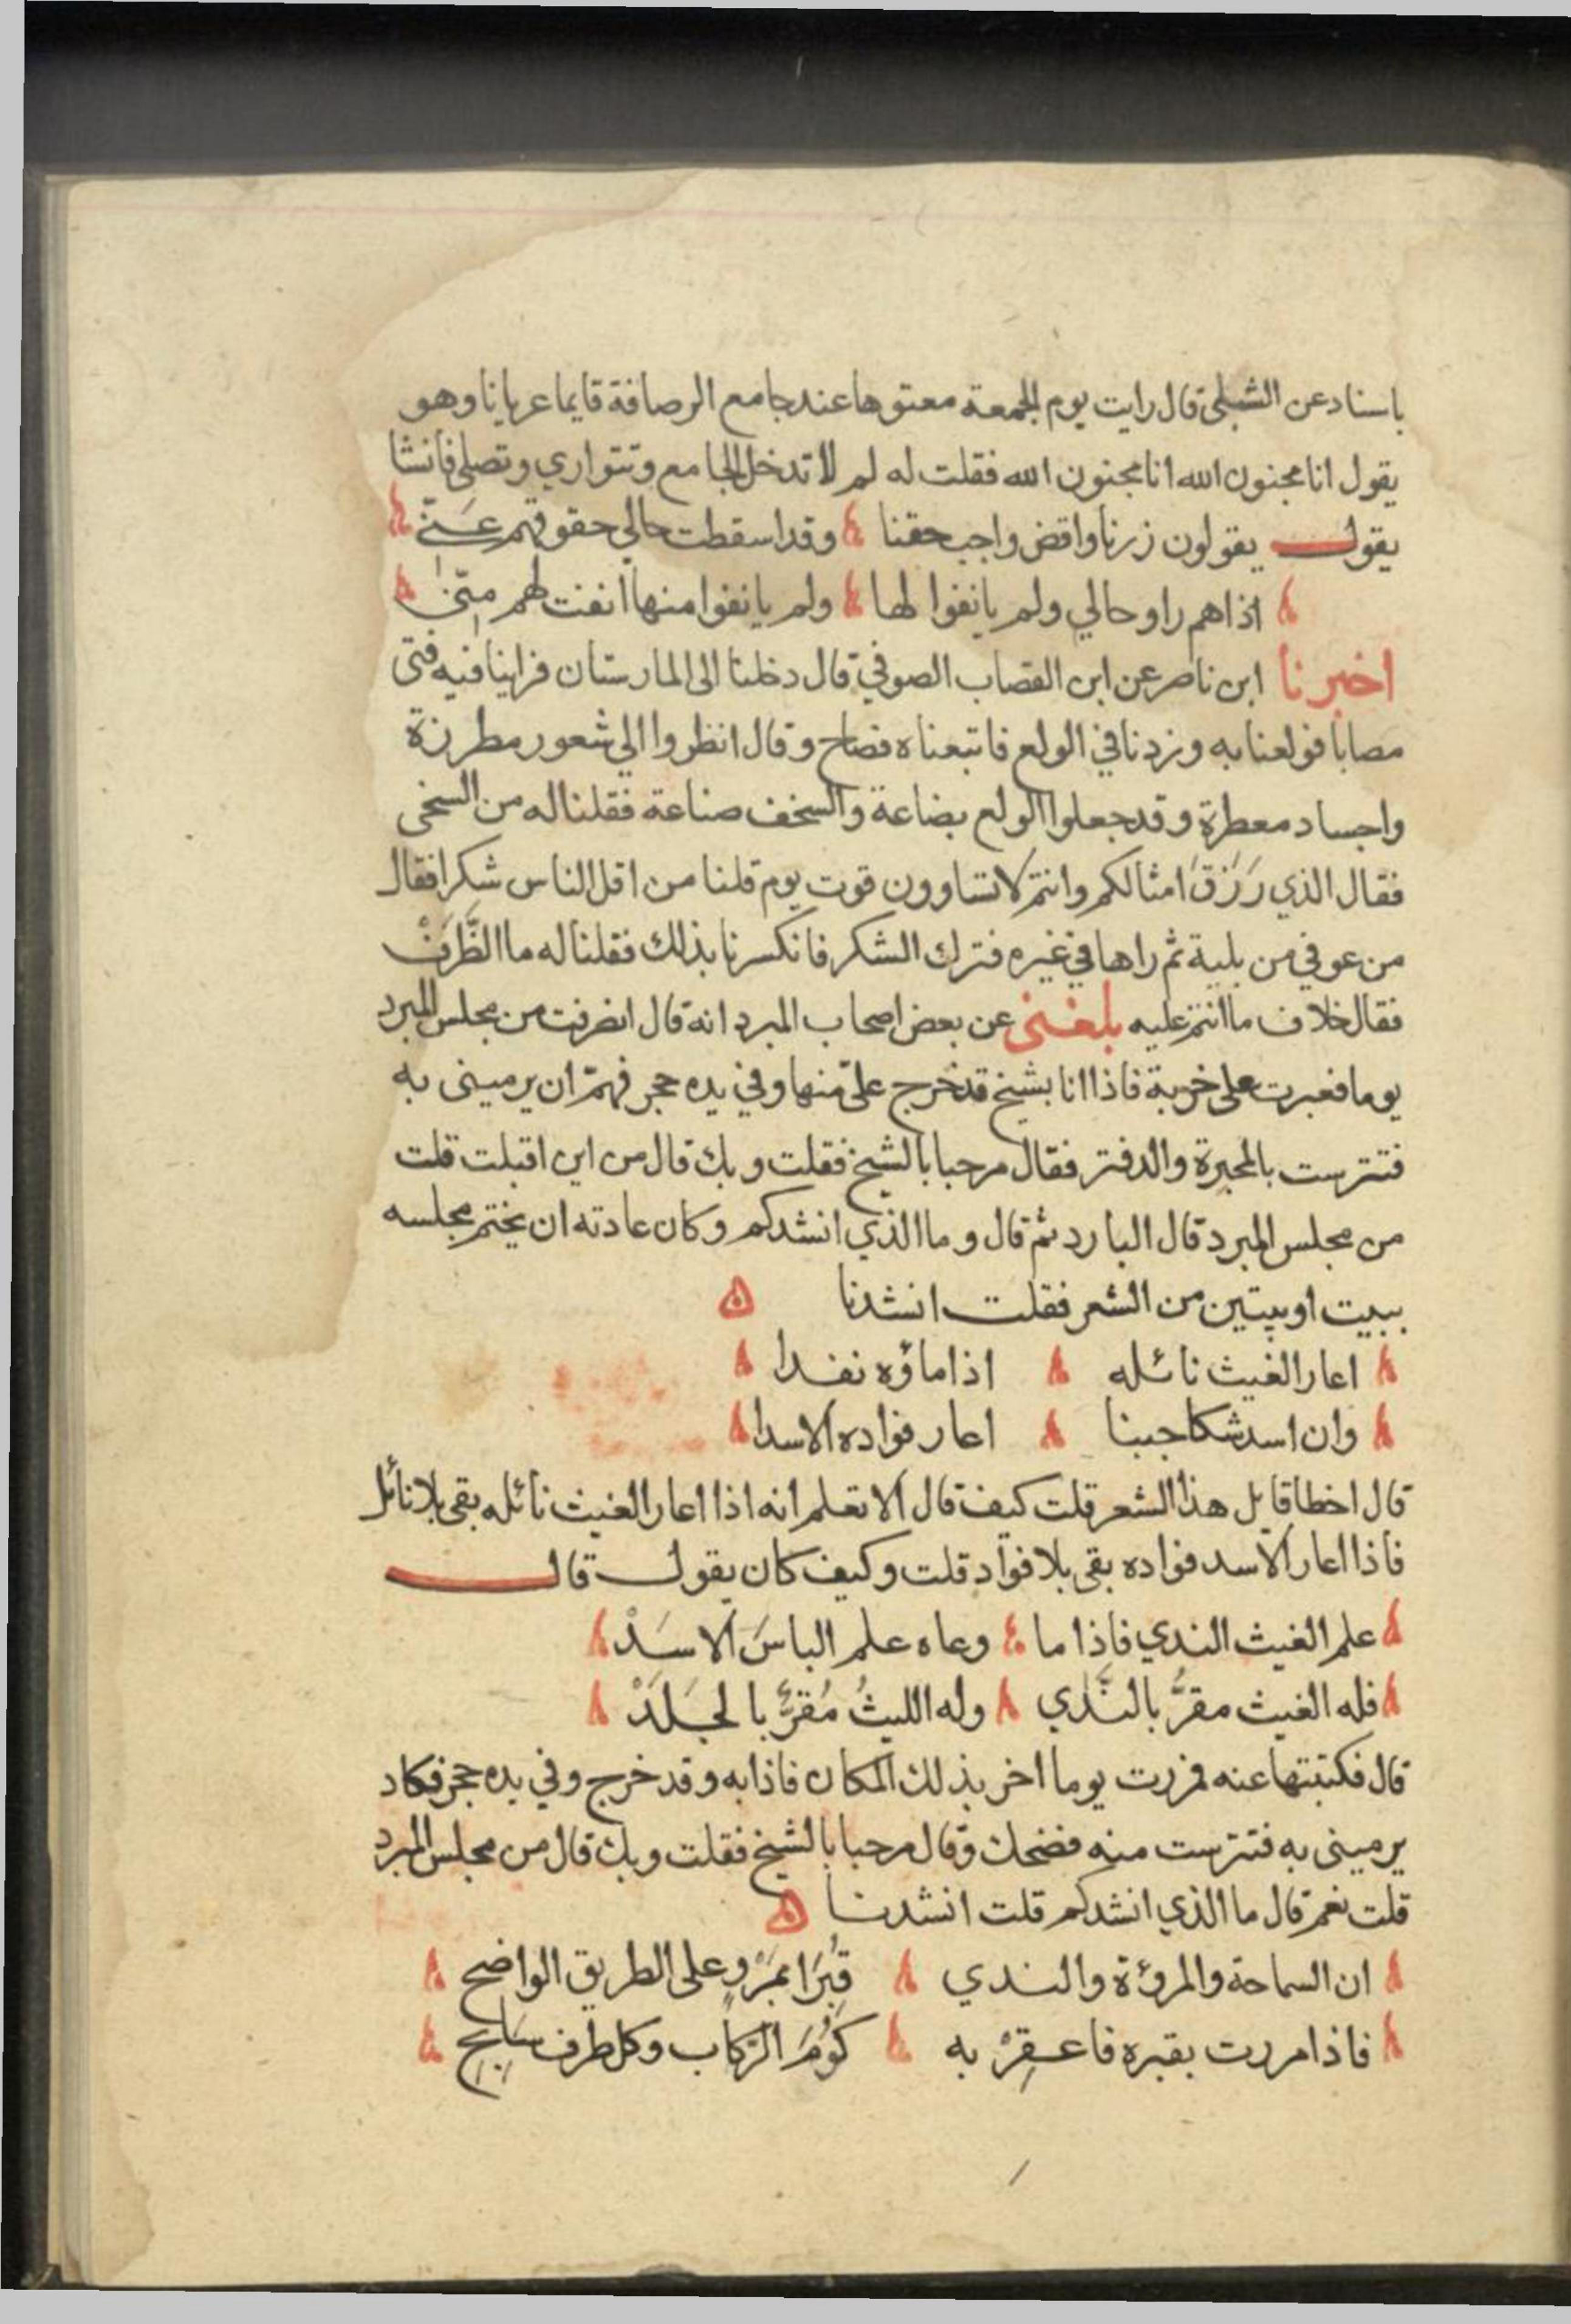 باسناد عن الشبلي قال رايت يوم الجمعة معتوها عند جامع الرصافة قايما عريانا وهو
يقول انا مجنون الله انا مجنون الله فقلت له لم لا تدخل الجامع وتتواري وتصلي فانشا
يقول يقولون زرنا واقض واجب حقنا وقد اسقطت حالي حقوقهم عَنّي
اذا هم راو حالي ولم يانفوا لها ولم يانفوا منها انفت لهم مِنّي
اخبرنا ابن ناصر عن ابن القصاب الصوفي قال دخلنا الى المارستان فراينا فيه فتى
مصابا فولعنا به وزدنا في الولع فاتبعناه فصاح وقال انظروا الي شعور مطرزة
واجساد معطرة وقد جعلوا الولع بضاعة والسخف صناعة فقلنا له من السخي
فقال الذي رَزَقَ امثالكم وانتم لا تساوون قوت يوم قلنا من اقل الناس شكرا فقال
من عوفي من بلية ثم راها في غيره فترك الشكر فانكسرنا بذلك فقلنا له ما الظَّرَفْ
فقال خلاف ما انتم عليه بلغني عن بعض اصحاب المبرد انه قال انصرفت من مجلس المبرد
يوما فعبرت على خربة فاذا انا بشيخ قد خرج علىّ منها وفي يده حجر فهمّ ان يرميني به
فتترست بالمحبرة والدفتر فقال مرحبا بالشيخ فقلت وبك قال من اين اقبلت قلت
من مجلس المبرد قال البارد ثم قال وما الذي انشدكم وكان عادته ان يختم مجلسه
ببيت او بيتين من الشعر فقلت انشدنا
اعار الغيث نائله اذا ماؤه نفدا
وان اسد شكا جبنا اعار فواده الاسدا
قال اخطا قايل هذا الشعر قلت كيف قال الا تعلم انه اذا اعار الغيث نائله بقى بلا نائل
فاذا اعار الاسد فواده بقى بلا فواد قلت وكيف كان يقول قال
علم الغيث الندي فاذا ما وعاه علم الباسَ الاسَدْ
فله الغيث مقرُّ بالنَّدي وله الليثُ مُقرُّ بالجَلَدْ
قال فكتبتها عنه فمررت يوما اخر بذلك المكان فاذا به وقد خرج وفي يده حجر فكاد
يرميني به فتترست منه فضحك وقال مرحبا بالشيخ فقلت وبك قال من مجلس المبرد
قلت نعم قال ما الذي انشدكم قلت انشدنا
ان السماحة والمروءة والندي قُبِرَا بمَرْوٍ على الطريق الواضح
فاذا مررت بقبره فاعقِرْ به كُومَ الرّكاب وكل طرف سَابِحِ